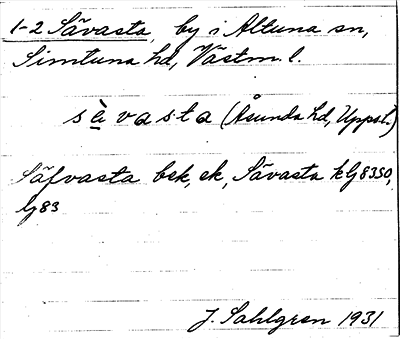 1-2 Sävasta, by i Altuna sn,
Simtuna hd, Västm. l.
sè̱vasta (Åsunda hd, Uppsl.)
Säfvasta bek, ek, Sävasta kg 8350,
lg 83
J. Sahlgren 1931